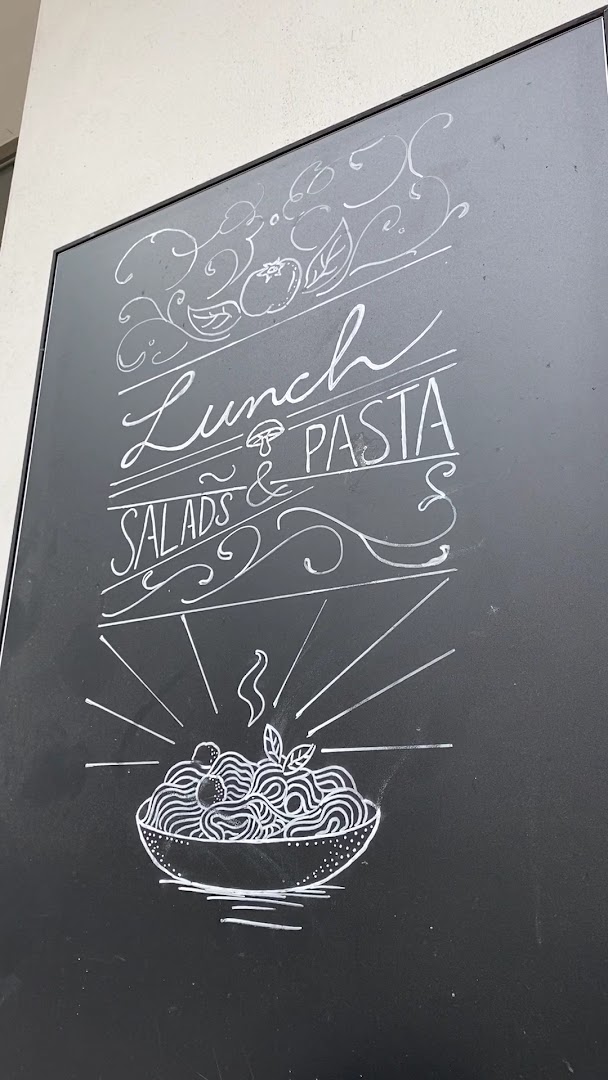 Lunch
SALADS & PASTA